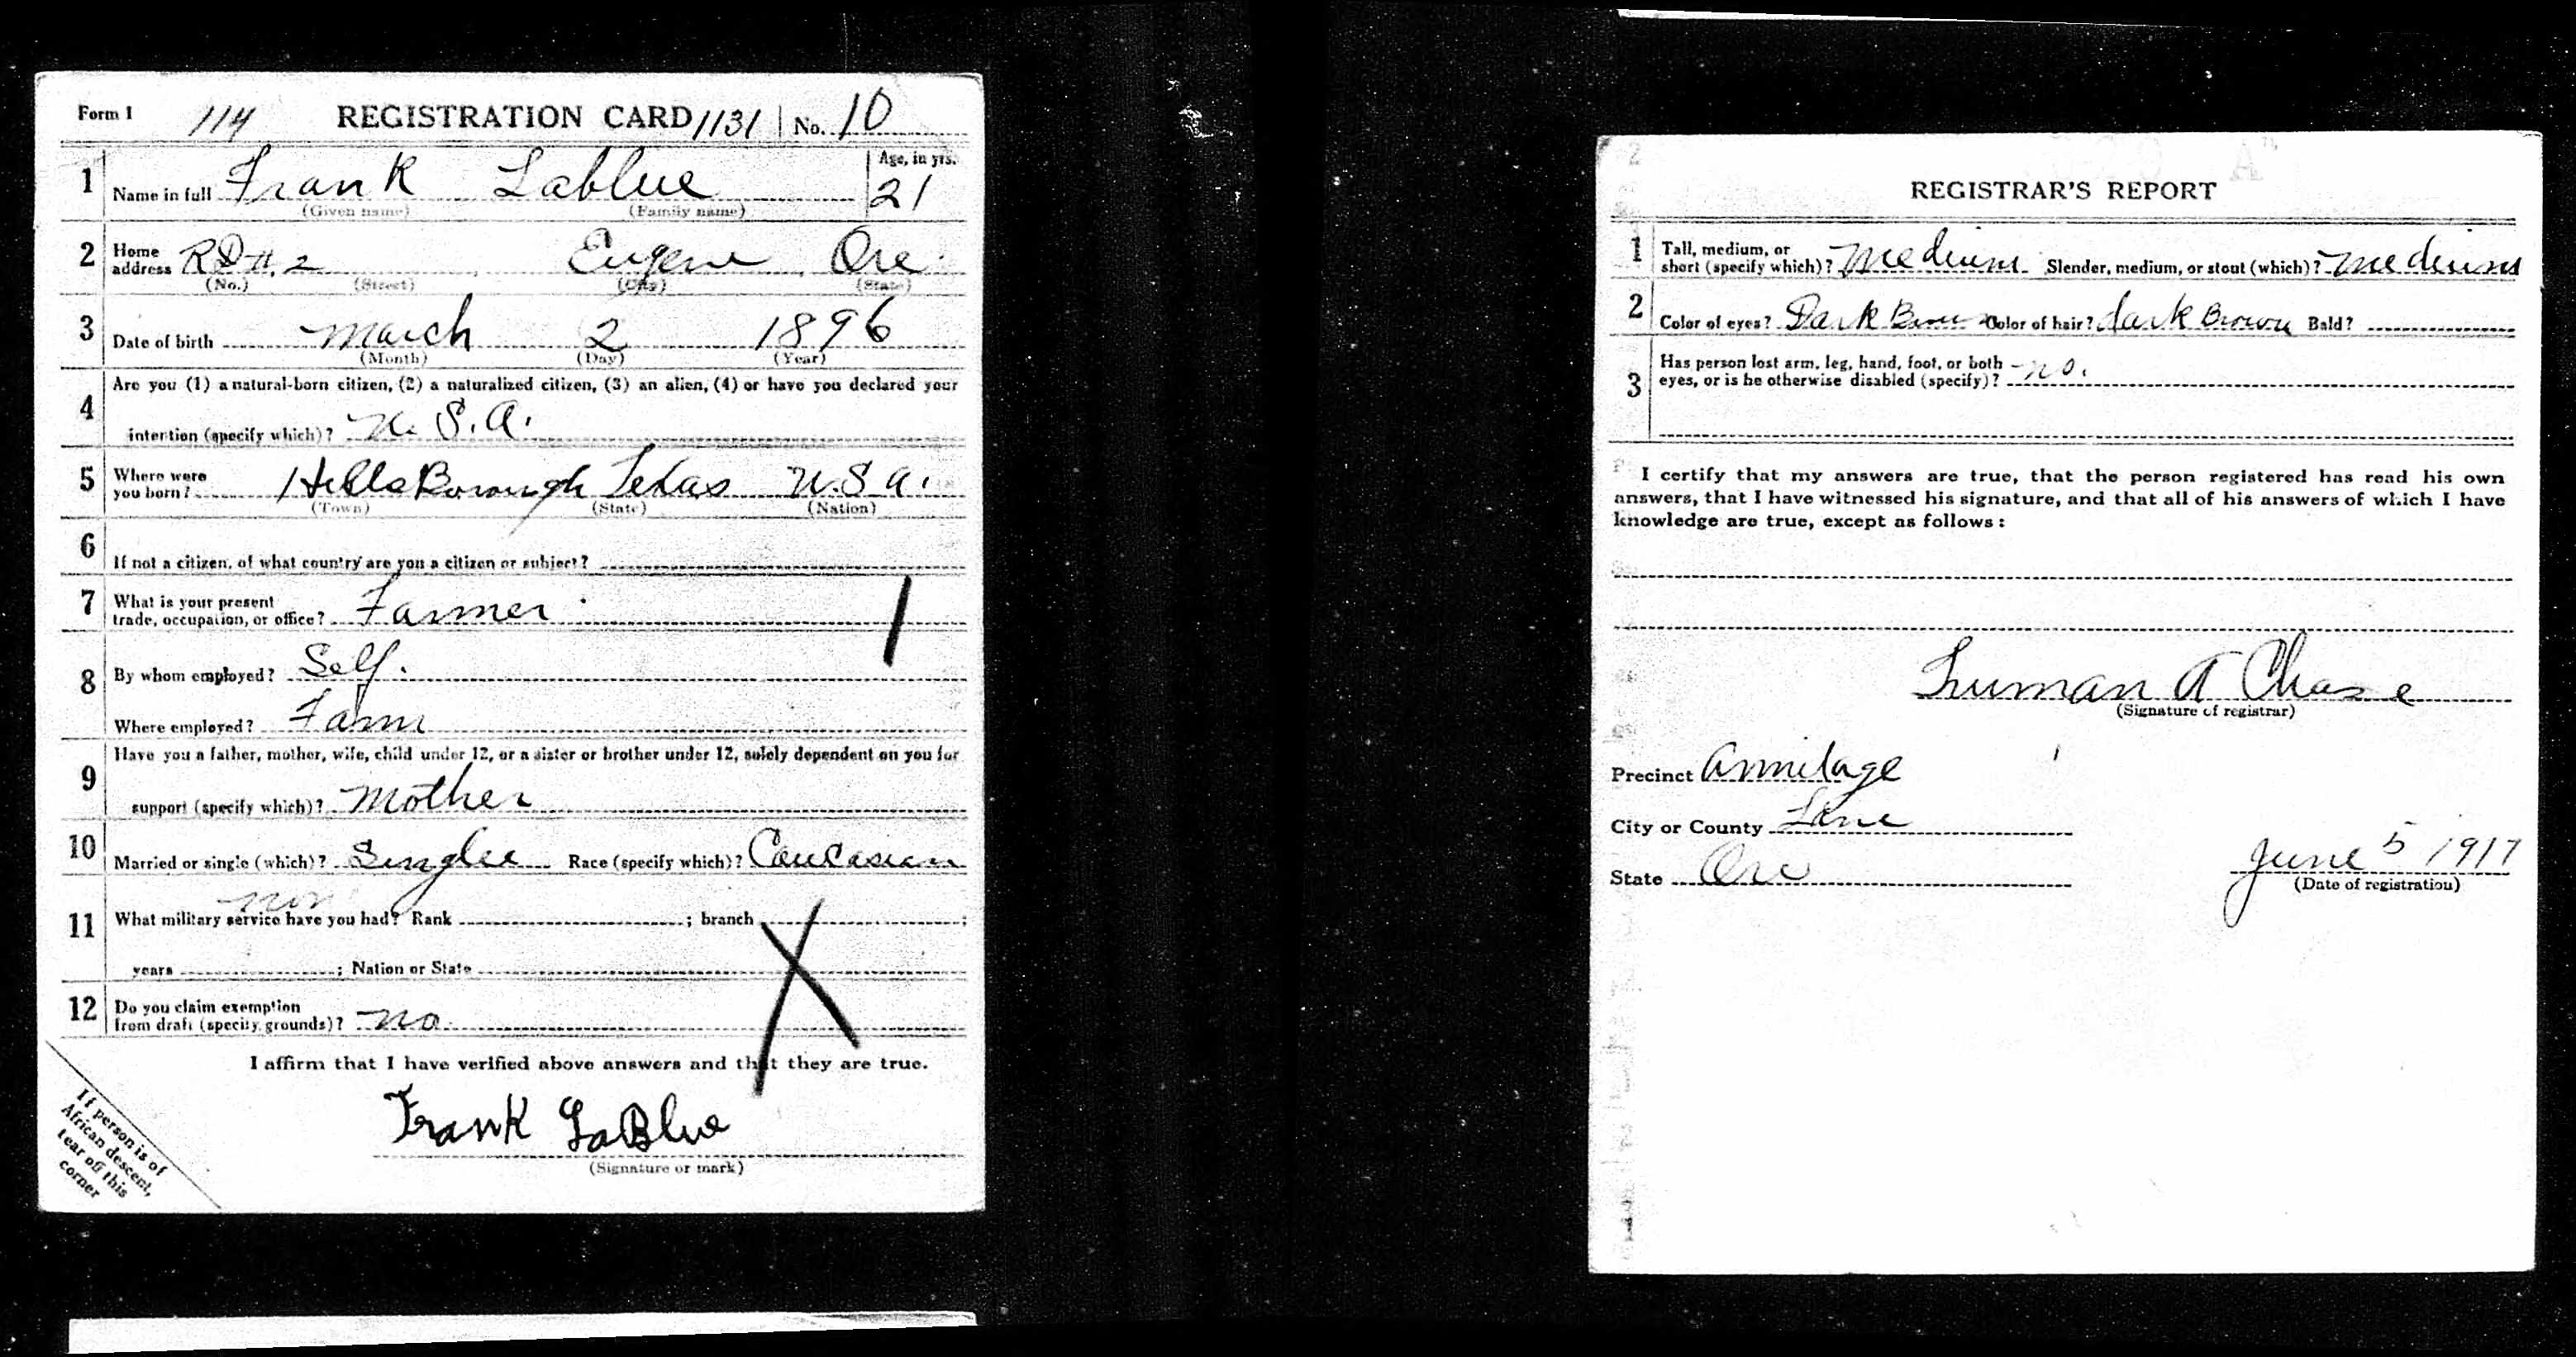 Form 1 114 REGISTRATION CARD 1131 No. 10
1 Name in full Frank Lablue Age, in yrs. 21
(Given name) (Family name)
2 Home address RD #. 2 Eugene Ore.
(No.) (Street) (City) (State)
3 Date of birth March 2 1896
(Month) (Day) (Year)
4 Are you (1) a natural-born citizen, (2) a naturalized citizen, (3) an alien, (4) or have you declared your
intention (specify which)? U. S. A.
5 Where were you born? HillsBorough Texas U.S.A.
(Town) (State) (Nation)
6 If not a citizen, of what country are you a citizen or subject?
7 What is your present trade, occupation, or office? Farmer
8 By whom employed? Self.
Where employed? Farm
9 Have you a father, mother, wife, child under 12, or a sister or brother under 12, solely dependent on you for
support (specify which)? Mother
10 Married or single (which)? Singlee Race (specify which)? Caucasian
11 What military service have you had? Rank ; branch ;
years ; Nation or State
12 Do you claim exemption from draft (specify grounds)? no
I affirm that I have verified above answers and that they are true.
Frank LaBlue
(Signature or mark)
If person is of
African descent,
tear off this
corner
REGISTRAR'S REPORT
1 Tall, medium, or short (specify which)? Medium Slender, medium, or stout (which)? Medium
2 Color of eyes? Dark Brown Color of hair? dark Brown Bald?
3 Has person lost arm, leg, hand, foot, or both
eyes, or is he otherwise disabled (specify)? no.
I certify that my answers are true, that the person registered has read his own
answers, that I have witnessed his signature, and that all of his answers of which I have
knowledge are true, except as follows:
Truman A Chase
(Signature of registrar)
Precinct Armitage
City or County Lane
State Ore
June 5 1917
(Date of registration)